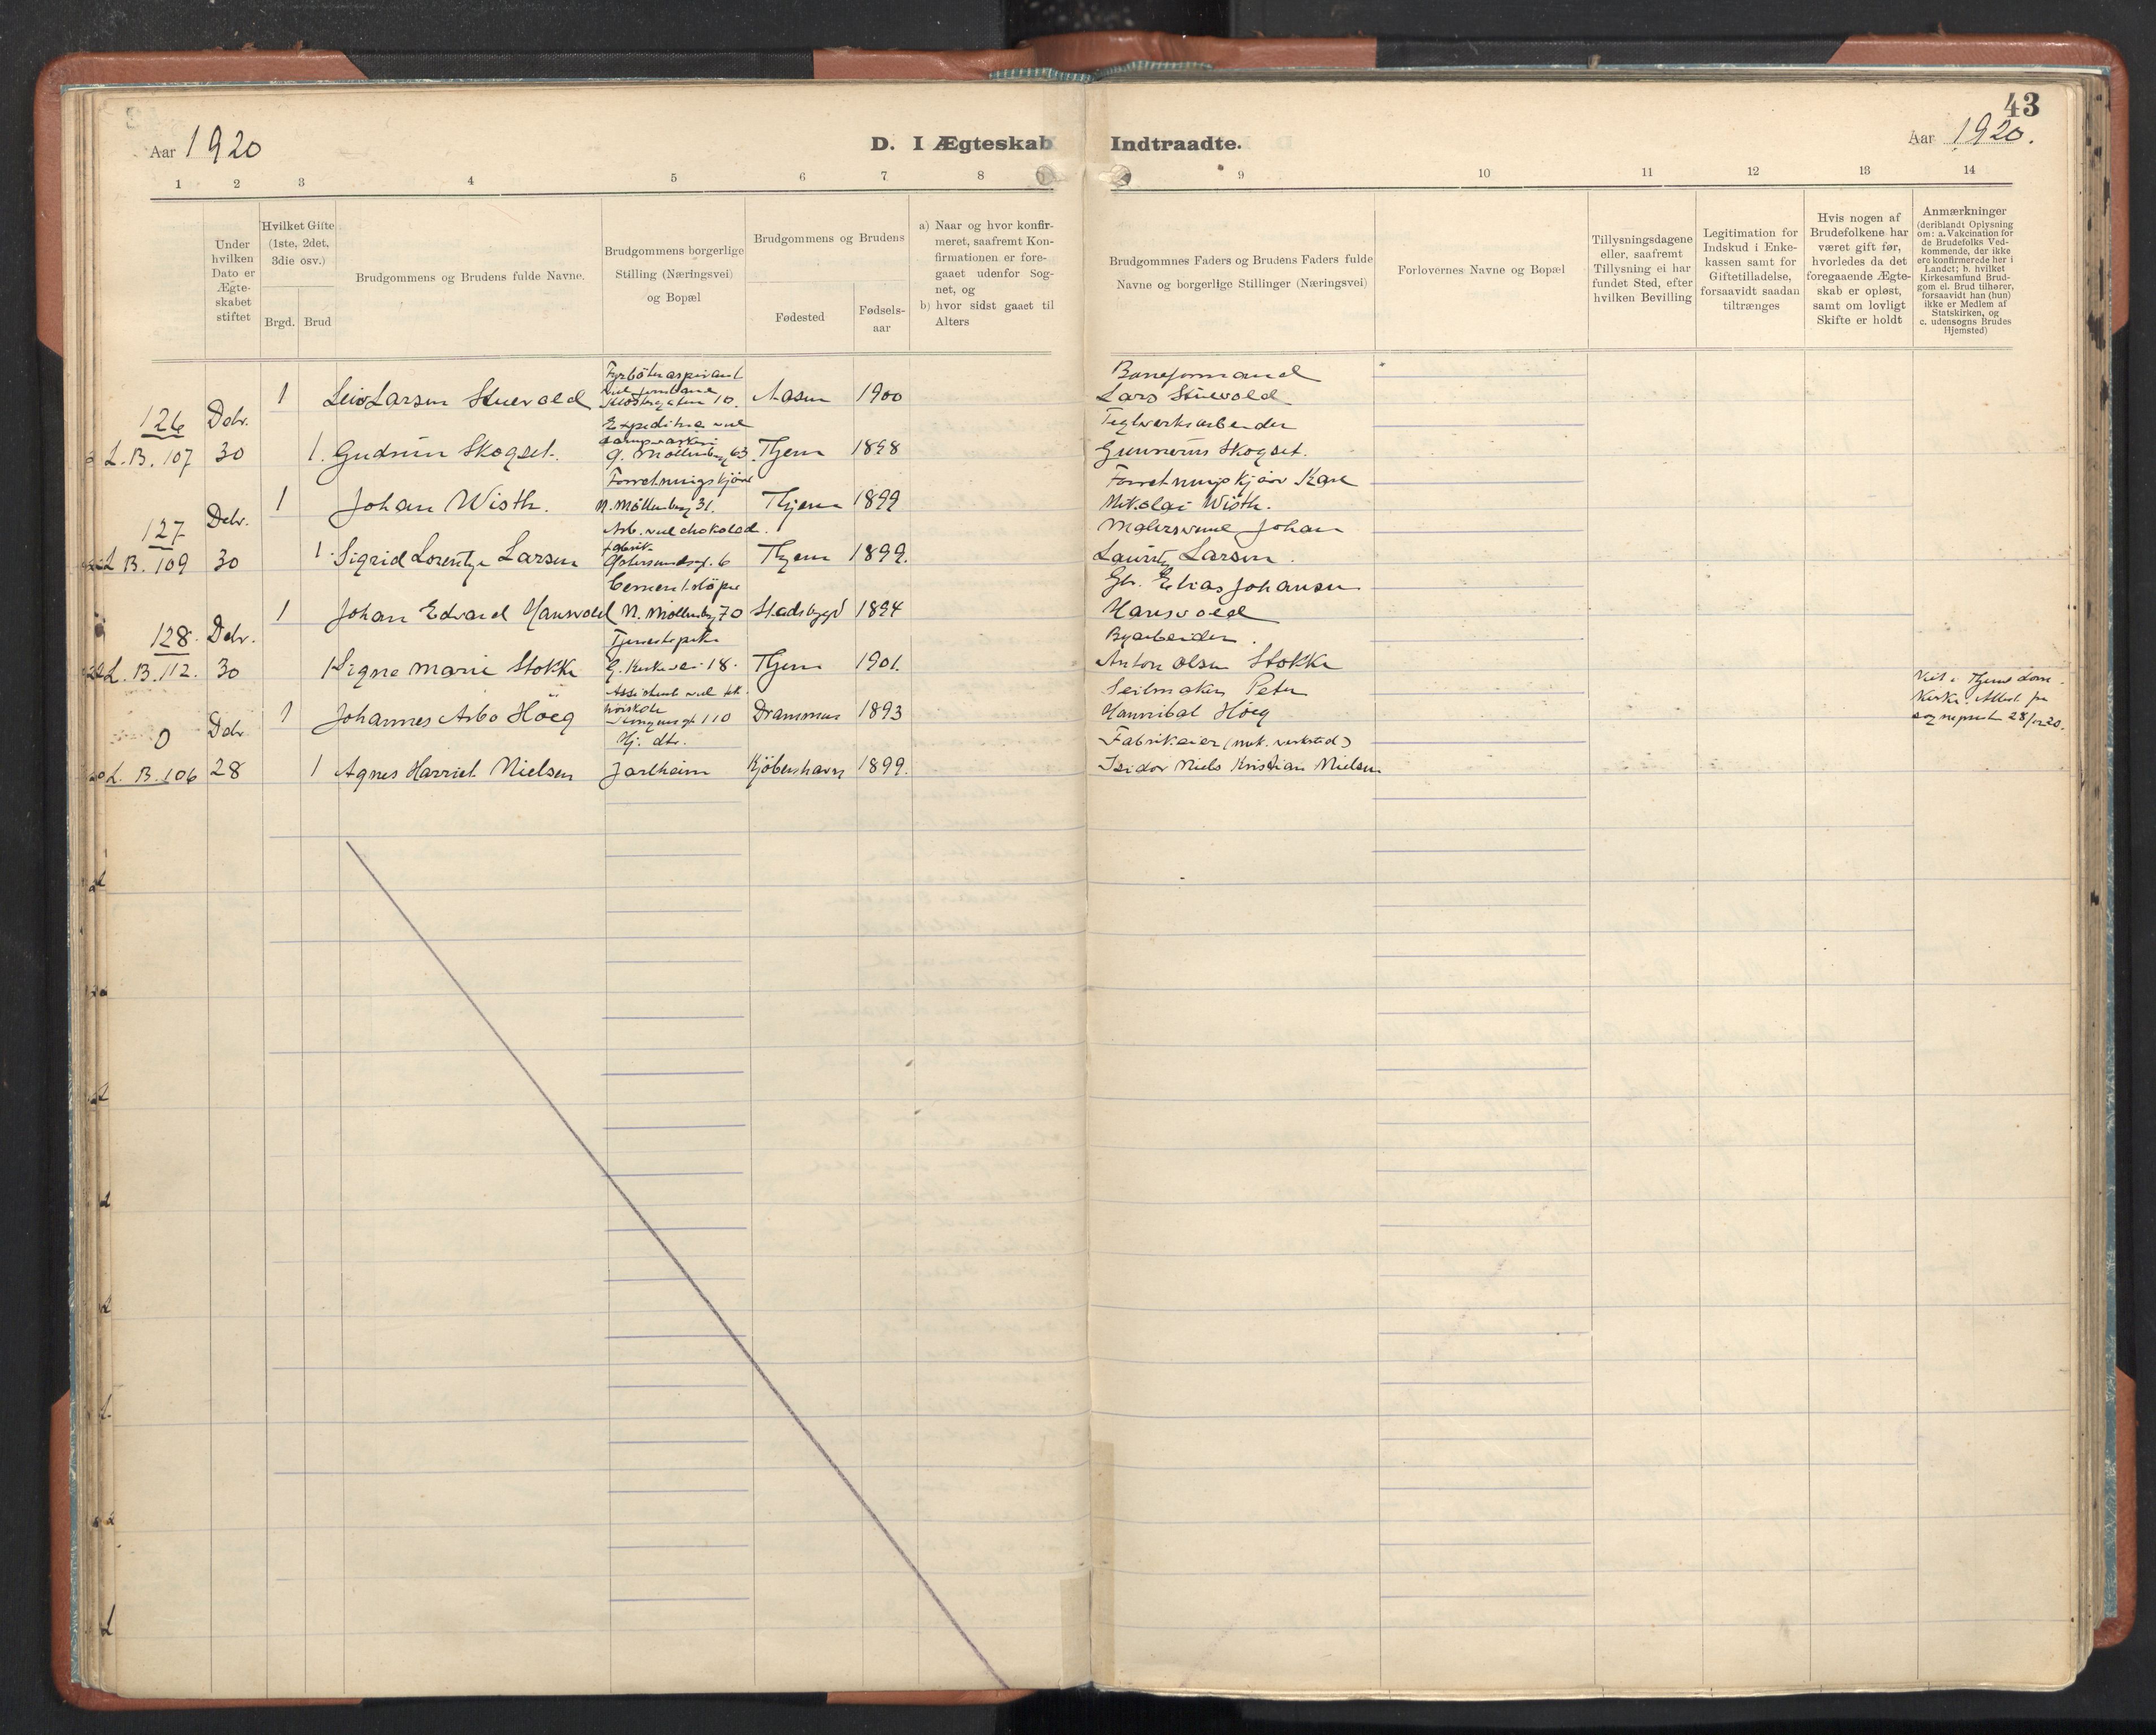 43
Aar 1920
D. I Ægteskab Indtraadte.
Aar 1920.
1 2 3 4 5 6 7 8 9 10 11 12 13 14
Under hvilken Dato er Ægte-skabet stiftet
Hvilket Gifte (1ste, 2det, 3die osv.)
Brgd. Brud
Brudgommens og Brudens fulde Navne.
Brudgommens borgerlige
Stilling (Næringsvei)
og Bopæl
Brudgommens og Brudens
Fødested
Fødsels-aar
a) Naar og hvor konfir-
meret, saafremt Kon-
firmationen er fore-
gaaet udenfor Sog-
net, og
b) hvor sidst gaaet til
Alters
Brudgommnes Faders og Brudens Faders fulde
Navne og borgerlige Stillinger (Næringsvei)
Forlovernes Navne og Bopæl
Tillysningsdagene
eller, saafremt
Tillysning ei har
fundet Sted, efter
hvilken Bevilling
Legitimation for
Indskud i Enke-
kassen samt for
Giftetilladelse,
forsaavidt saadan
tiltrænges
Hvis nogen af
Brudefolkene har
været gift før,
hvorledes da det
foregaaende Ægte-
skab er opløst,
samt om lovligt
Skifte er holdt
Anmærkninger
(deriblandt Oplysning
om: a. Vakcination for
de Brudefolks Ved-
kommende, der ikke
ere konfirmerede her i
Landet; b. hvilket
Kirkesamfund Brud-
gom el. Brud tilhører,
forsaavidt han (hun)
ikke er Medlem af
Statskirken, og
c. udensogns Brudes
Hjemsted)
Fyrböteraspirant
Baneformand
1 Leiv Larsen Stuevold 10. Aasen 1900 Lars Stuevold
126 Debr.
Expeditrice ved
Teglverksarbeider
L.B. 107 30 1. Gudrun Skogset. 63. Thjem 1898 Gunnerius Skogset.
Forretningskjörer
Forretningskjörer Karl
1 Johan Wisth. N. Möllenberg 31. Thjem 1899 Nikolai Wisth.
127 Debr.
Arb. ved chokolad.
fabrik
Malersvend Johan
L B. 109 30 1. Sigrid Lorentze Larsen 6 Thjem 1899. Laurits Larsen.
Cementstöper
Gb. Elias Johansen
1 Johan Edvard Hansvold N. Möllenberg 70 Stadsbygd 1894 Hansvold
128. Debr.
Tjenestepike
Byarbeider.
L.B. 112. 30 1 Signe Marie Stokke G. Kirkevei 18. Thjem 1901. Anton Olsen Stokke
Assistent ved tek.
höiskole
Seilmaker Peter
1 Johannes Arbo Höeg 110 Drammen 1893 Hannibal Höeg
Viet i Thjems dom-
kirke. Attest fra
sogneprest 28/12 20.
0 Debr.
Hj. dtr.
Fabrikeier (mek. verksted)
L. B. 106 28 1 Agnes Harriet Nielsen Jarlheim Kjöbenhavn 1899. Isidor Niels Kristian Nielsen